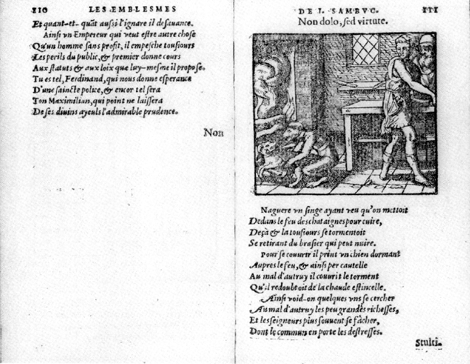 210 LES EMBLESMES
Et quant-et-quāt aussi l'ignare il desuance.
Ainsi vn Empereur qui veut estre autre chose
Qu'vn homme sans profit, il empesche tousiours
Les perils du public, & premier donne cours
Aux statuts & aux loix que luy-mesme il propose.
Tu es tel, Ferdinand, qui nous donne esperance
D'vne saincte police, & encor tel sera
Ton Maximilian, qui point ne laissera
De ses diuins ayeuls l'admirable prudence.
Non
DE I. SAMBVC. 211
Non dolo, sed virtute.
Naguere vn singe ayant veu qu'on mettoit
Dedans le feu des chataignes pour cuire,
Deçà & la tousiours se tormentoit
Se retirant du brasier qui peut nuire.
Pour se couurir il print vn chien dormant
Aupres le feu, & ainsi par cautelle
Au mal d'autruy il couurit le torment
Qu'il redouboit de la chaude estincelle.
Ainsi void-on quelques vns se cercher
Au mal d'autruy les peu grandes richesses,
Et les seigneurs plus souuent se fâcher,
Dont le commun en porte les destresses.
Stulti-